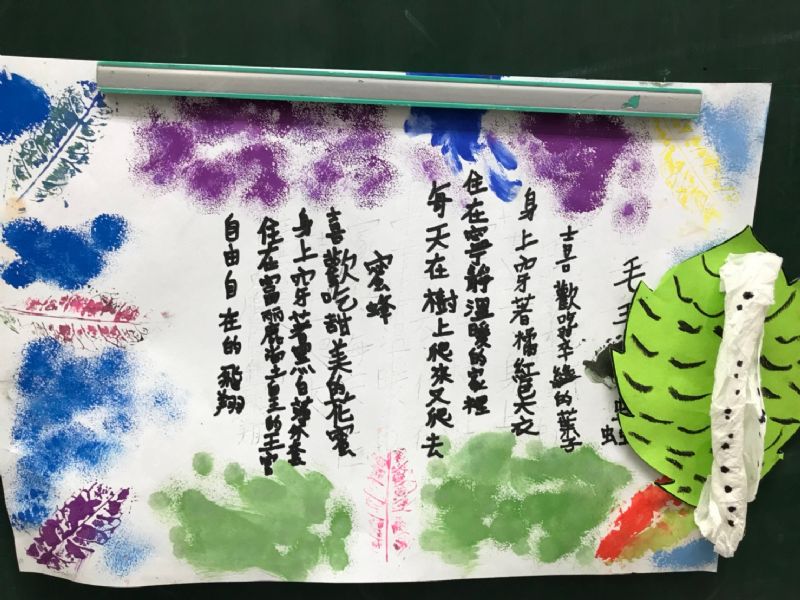 毛
喜歡吃翠綠的葉子
身上穿著橘紅色大衣
住在寧靜溫暖的家裡
每天在樹上爬來又爬去
蜜蜂
喜歡吃甜美的花蜜
身上穿著黑白薄外套
住在富麗堂皇的王宮
自由自在的飛翔